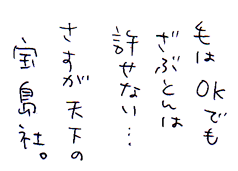 毛はOKでも
ざぶとんは
許せない…
さすが天下の
宝島社。